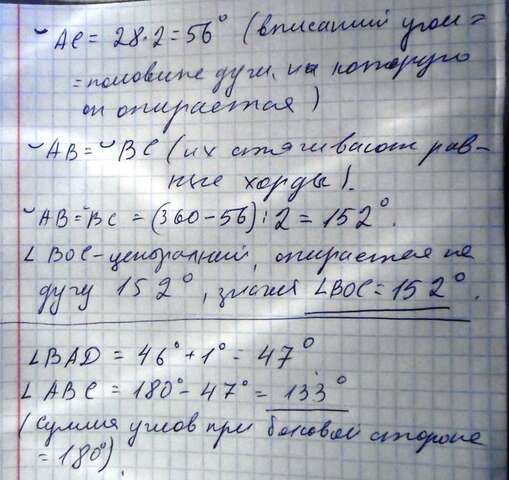 ◡AC = 28·2 = 56° (вписаний угол =
= половине дуги, на которую
он опирается)
◡AB = ◡BC (их стягивают рав-
ные хорды).
◡AB = BC = (360 – 56) : 2 = 152°.
∠BOC – центральний, опирается на
дугу 152°, значит ∠BOC = 152°.
∠BAD = 46° + 1° = 47°
∠ABC = 180° – 47° = 133°
(сумма углов при боковой стороне
= 180°).